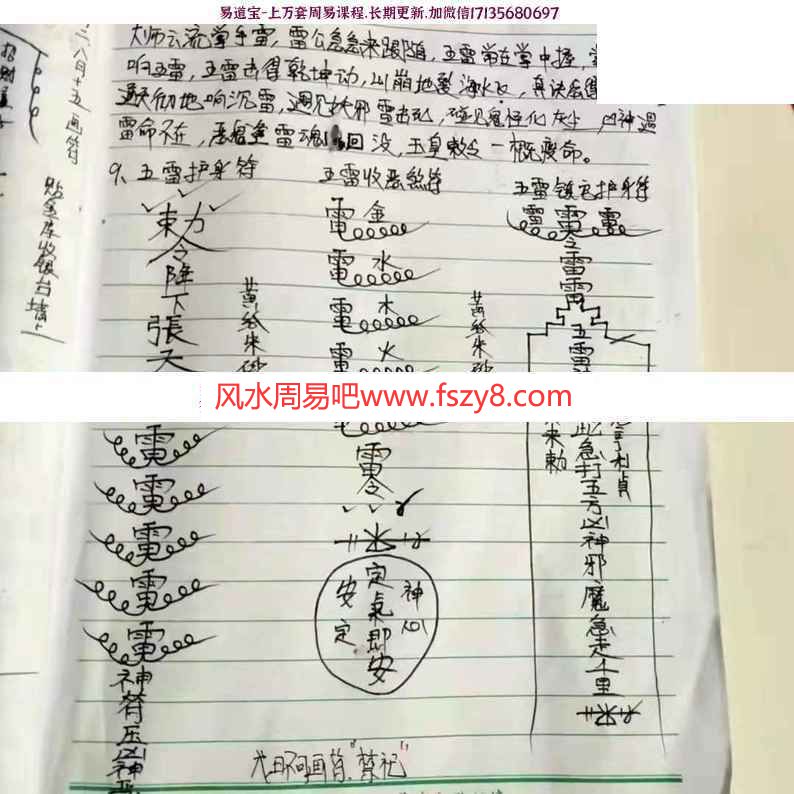 易道宝-上万套周易课程.长期更新.加微信17135680697
大师云流掌手雷，雷公急急来跟随，五雷常在掌中握，
响五雷，五雷击得乾坤动，山崩地裂海水飞，真诀
彻地响沉雷，遇见妖邪雷击死，碰见鬼怪化灰尘，凶神遇
雷命不在，恶煞逢雷魂回没，玉皇敕令一概受命。
9、五雷护身符
五雷收恶煞符
五雷镇宅护身符
二八日十五画符
贴金库收银台墙上
東方
令
降
下
張
天
黄纸朱砂
電金
電水
電木
電火
黄纸朱砂
雷雷雷
令
雷
雷
五
雷
风水周易吧www.fszy8.com
電
電
電
電
電
神符压凶神
雷
令
安定
定氣即安
神
急打五方凶神邪魔急走千里
戊日不画符"禁记"